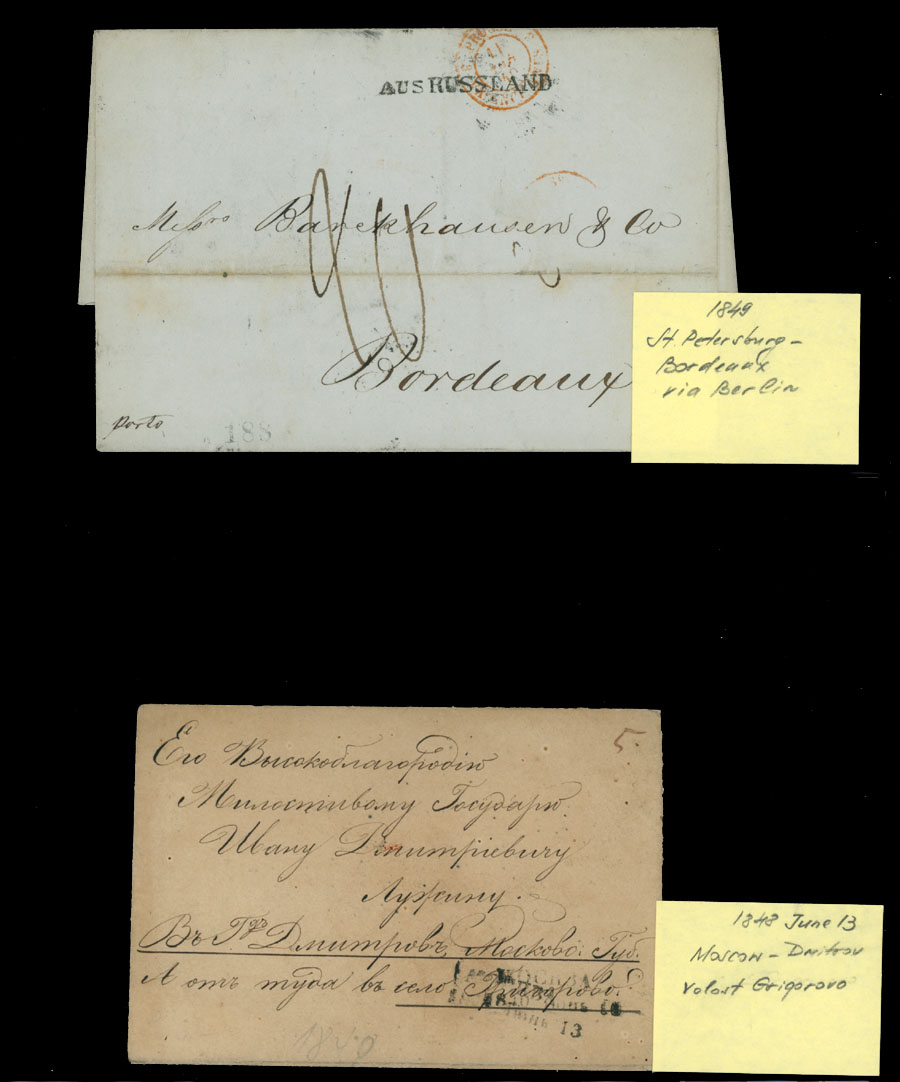 AUS RUSSLAND
Messrs Barckhausen & Co
Bordeaux
porto
188
1849
St Petersburg -
Bordeaux
via Berlin
5.
Его Высокоблагородію
Милостивому Государю
Ивану Дмитріевичу
Лужину.
Въ Гд Дмитровъ, Московс: Губ.
А отъ туда въ село
МОСКВА
13
1848 June 13
Moscow - Dmitrov
Volost Grigorovo